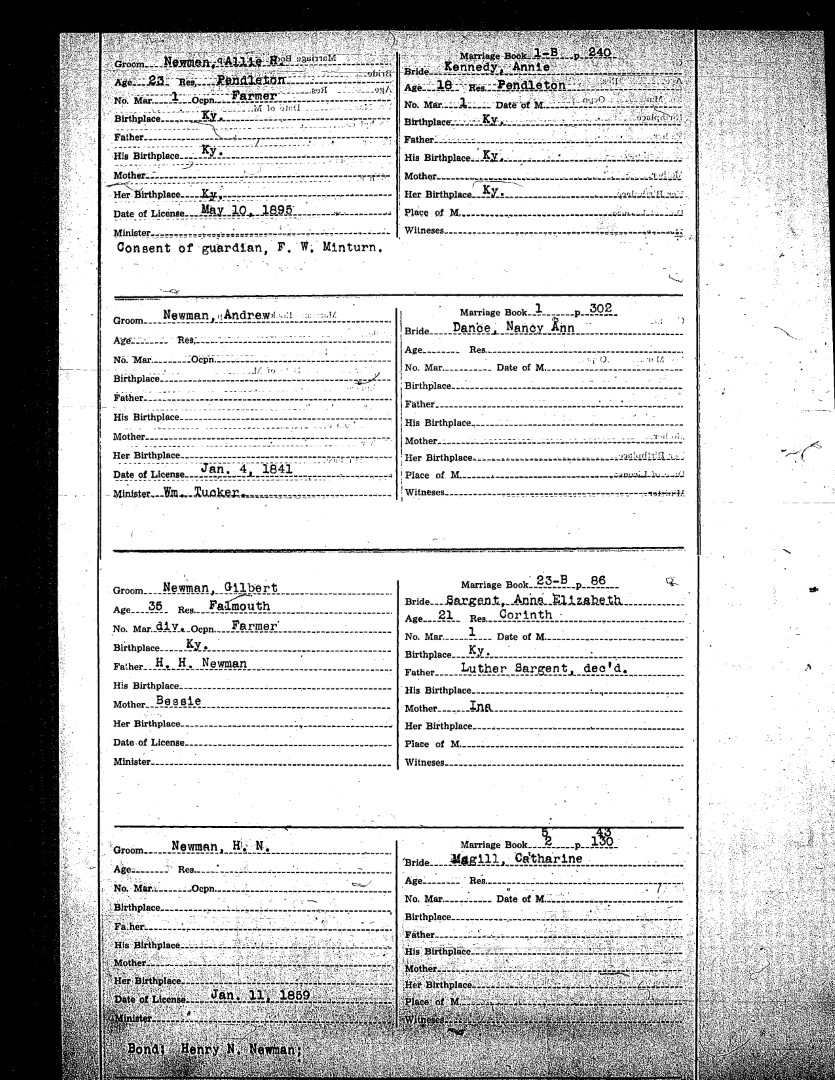 Groom Newman, Allie R.
Age 23 Res. Pendleton
No. Mar. 1 Ocpn. Farmer
Birthplace Ky.
Father
His Birthplace Ky.
Mother
Her Birthplace Ky.
Date of License May 10, 1895
Minister
Consent of guardian, F. W. Minturn.
Marriage Book 1-B p. 240
Bride Kennedy, Annie
Age 18 Res. Pendleton
No. Mar. 1 Date of M.
Birthplace Ky.
Father
His Birthplace Ky.
Mother
Her Birthplace Ky.
Place of M.
Witneses
Groom Newman, Andrew
Age Res.
No. Mar. Ocpn.
Birthplace
Father
His Birthplace
Mother
Her Birthplace
Date of License Jan. 4, 1841
Minister Wm. Tucker.
Marriage Book 1 p. 302
Bride Dance, Nancy Ann
Age Res.
No. Mar. Date of M.
Birthplace
Father
His Birthplace
Mother
Her Birthplace
Place of M.
Witneses
Groom Newman, Gilbert
Age 35 Res. Falmouth
No. Mar. div. Ocpn. Farmer
Birthplace Ky.
Father H. H. Newman
His Birthplace
Mother Bessie
Her Birthplace
Date of License
Minister
Marriage Book 23-B p. 86
Bride Sargent, Anna Elizabeth
Age 21 Res. Corinth
No. Mar. 1 Date of M.
Birthplace Ky.
Father Luther Sargent, dec'd.
His Birthplace
Mother Ina
Her Birthplace
Place of M.
Witneses
Groom Newman, H. N.
Age Res.
No. Mar. Ocpn.
Birthplace
Father
His Birthplace
Mother
Her Birthplace
Date of License Jan. 11, 1859
Minister
Bond: Henry N. Newman;
5 43
Marriage Book 2 p. 130
Bride Magill, Catharine
Age Res.
No. Mar. Date of M.
Birthplace
Father
His Birthplace
Mother
Her Birthplace
Place of M.
Witneses